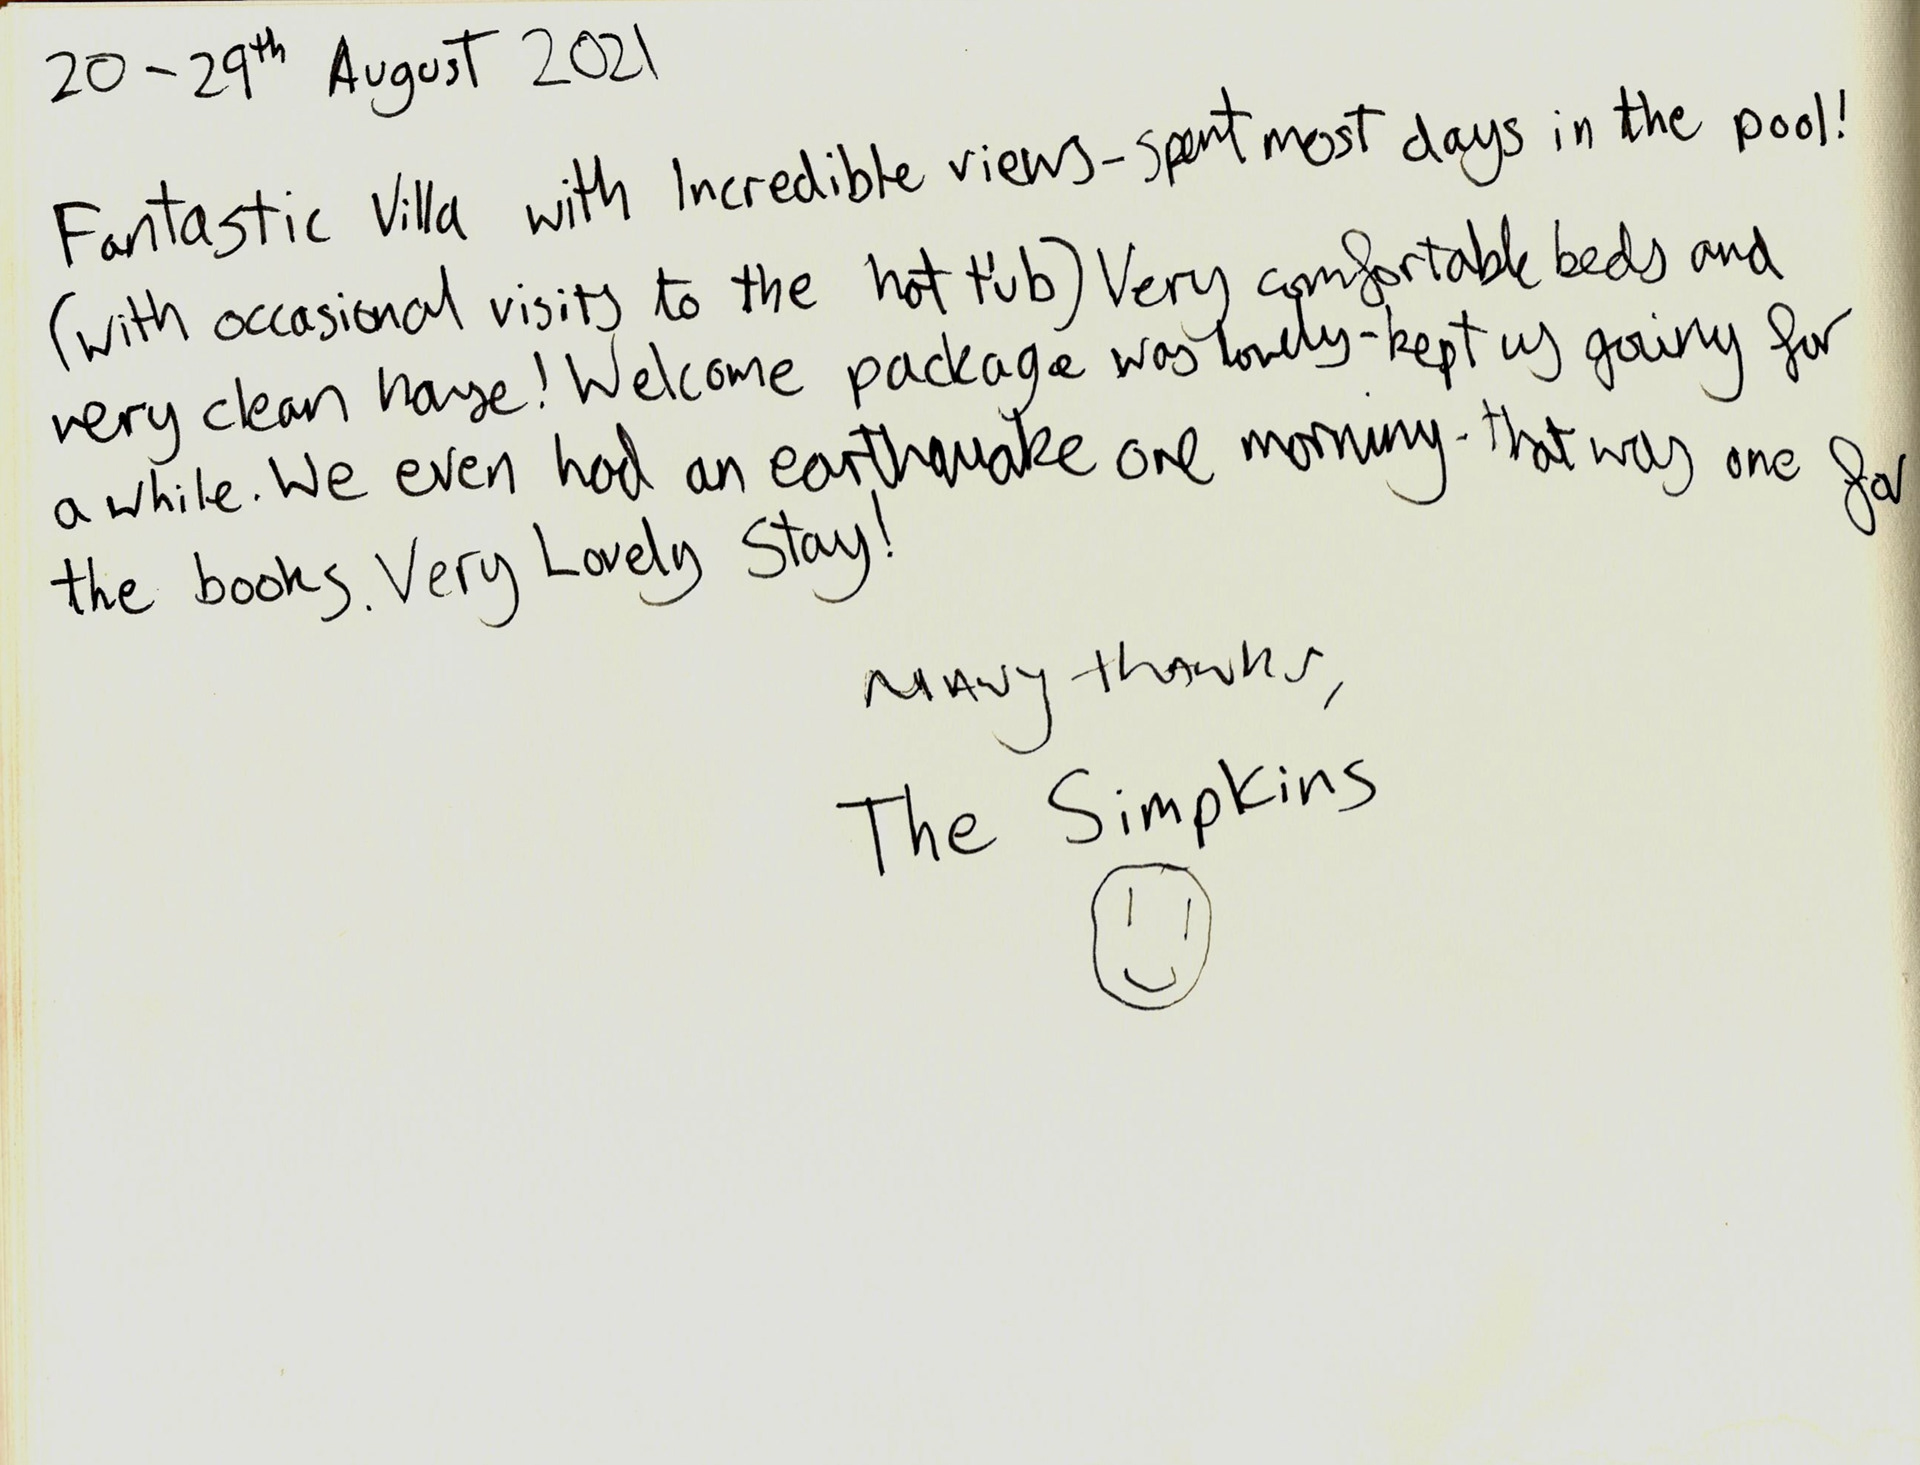 20-29th August 2021
Fantastic Villa with Incredible views-spent most days in the pool!
(with occasional visits to the hot tub) Very comfortable beds and
very clean house! Welcome package was lovely-kept us going for
a while. We even had an earthquake one morning-that was one for
the books. Very Lovely Stay!
Many thanks,
The Simpkins